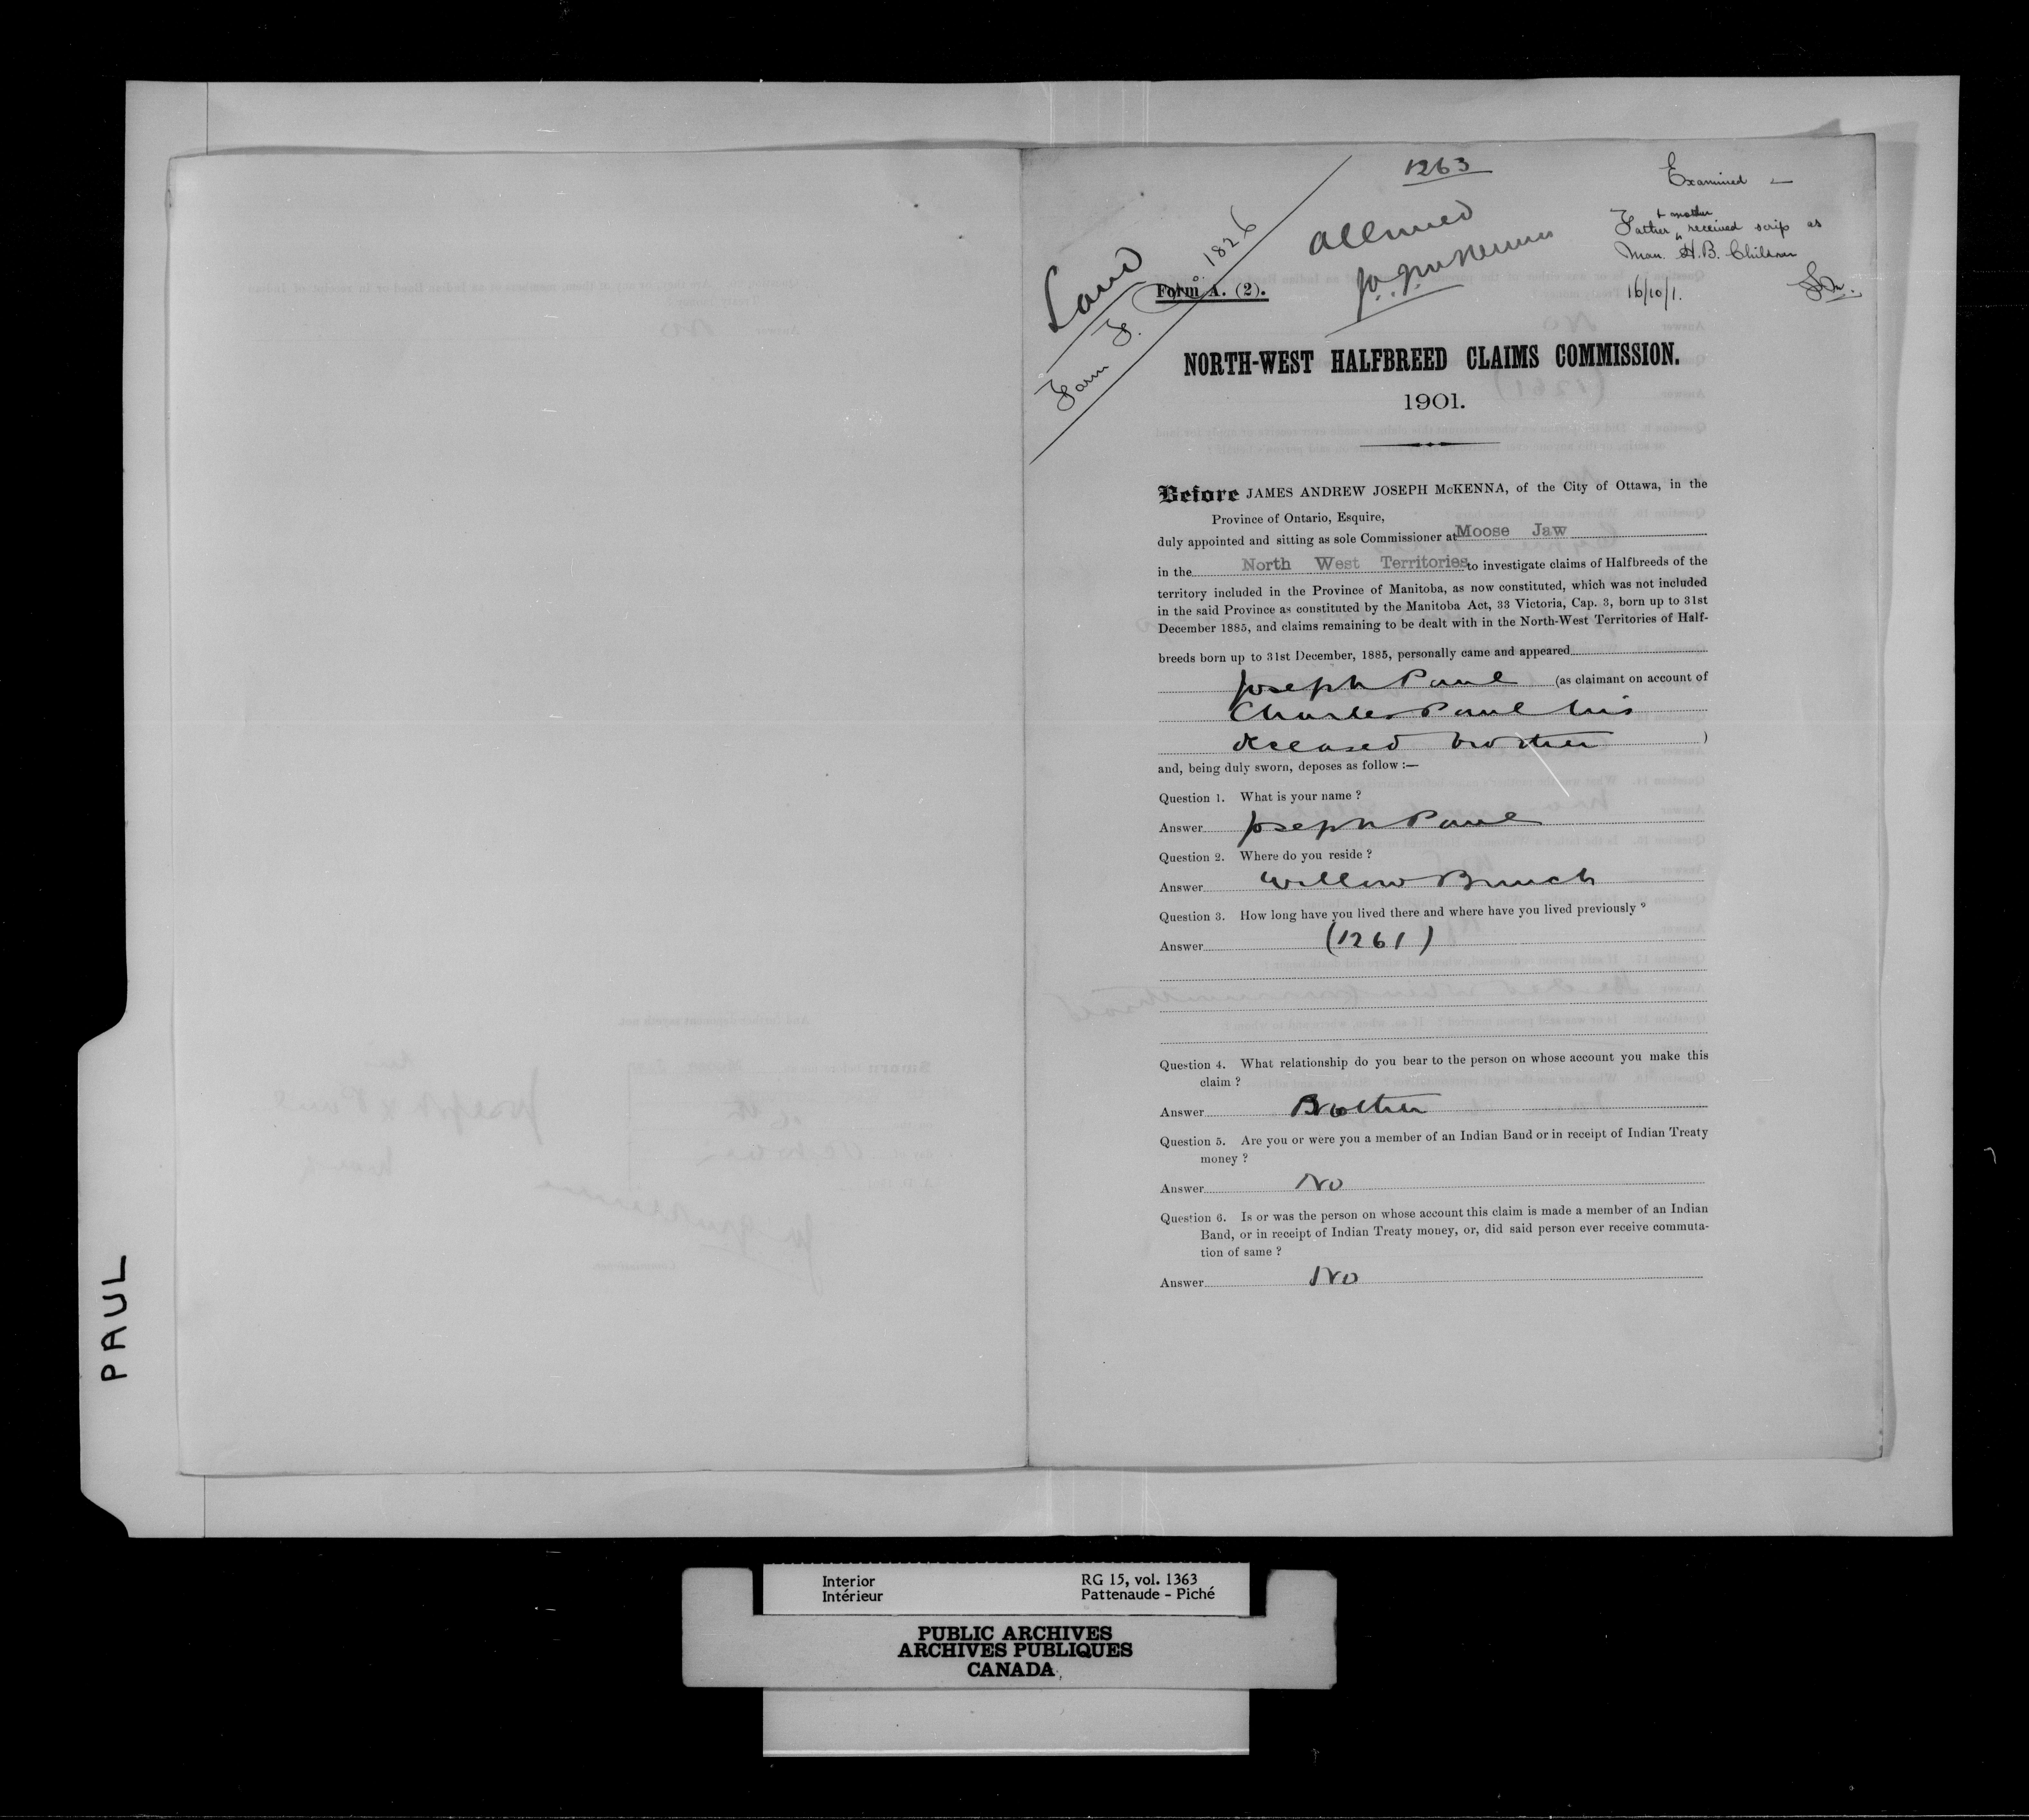 1263
Examined —
& mother
Father ʌ received scrip as
Man. H.B. Children
16/10/1.
Allowed
Land
Form F. No. 1826
Form A. (2).
NORTH-WEST HALFBREED CLAIMS COMMISSION.
1901.
Before JAMES ANDREW JOSEPH McKENNA, of the City of Ottawa, in the
Province of Ontario, Esquire,
duly appointed and sitting as sole Commissioner at Moose Jaw
in the North West Territories to investigate claims of Halfbreeds of the
territory included in the Province of Manitoba, as now constituted, which was not included
in the said Province as constituted by the Manitoba Act, 33 Victoria, Cap. 3, born up to 31st
December 1885, and claims remaining to be dealt with in the North-West Territories of Half-
breeds born up to 31st December, 1885, personally came and appeared
Joseph Paul (as claimant on account of
Charles Paul his
deceased brother )
and, being duly sworn, deposes as follow :—
Question 1. What is your name ?
Answer Joseph Paul
Question 2. Where do you reside ?
Answer Willow Bunch
Question 3. How long have you lived there and where have you lived previously ?
Answer (1261)
Question 4. What relationship do you bear to the person on whose account you make this
claim ?
Answer Brother
Question 5. Are you or were you a member of an Indian Band or in receipt of Indian Treaty
money ?
Answer No
Question 6. Is or was the person on whose account this claim is made a member of an Indian
Band, or in receipt of Indian Treaty money, or, did said person ever receive commuta-
tion of same ?
Answer No
PAUL
Interior
Intérieur
RG 15, vol. 1363
Pattenaude - Piché
PUBLIC ARCHIVES
ARCHIVES PUBLIQUES
CANADA